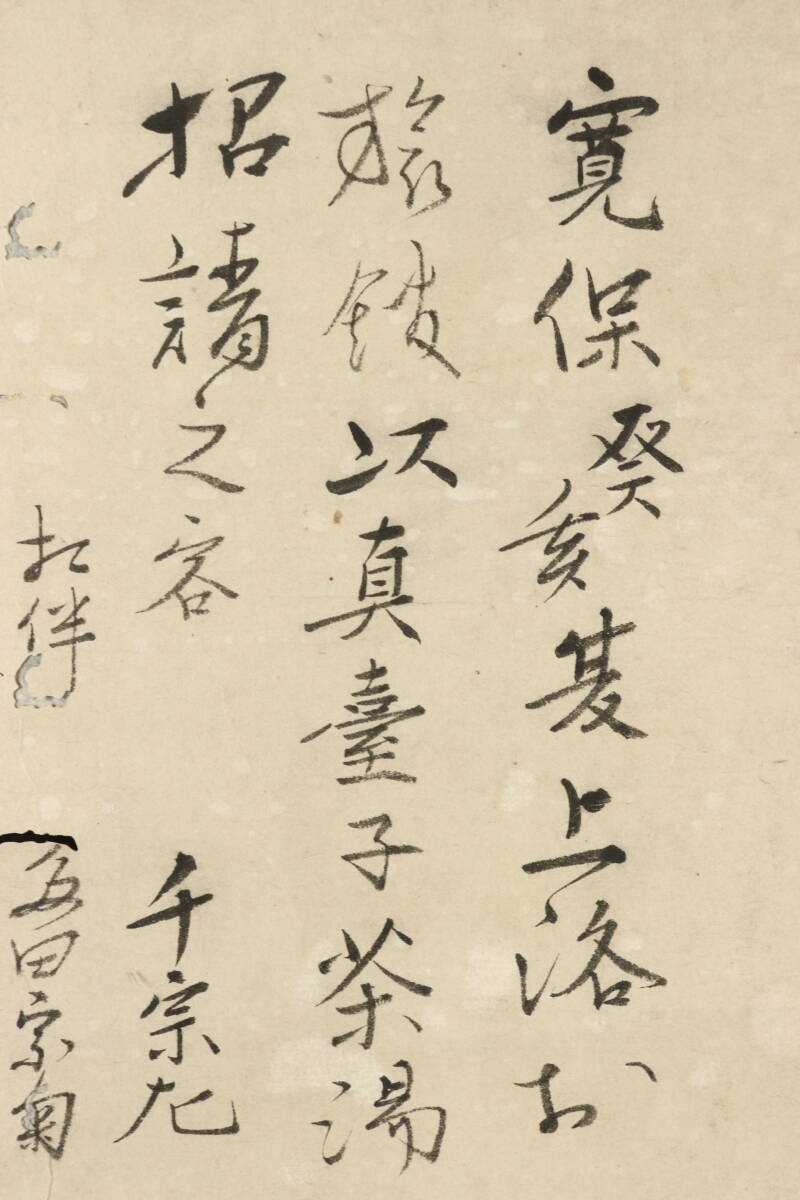 寛保癸亥夏上洛於
旅館以真臺子茶湯
招請之客 千宗左
相伴 多田宗菊